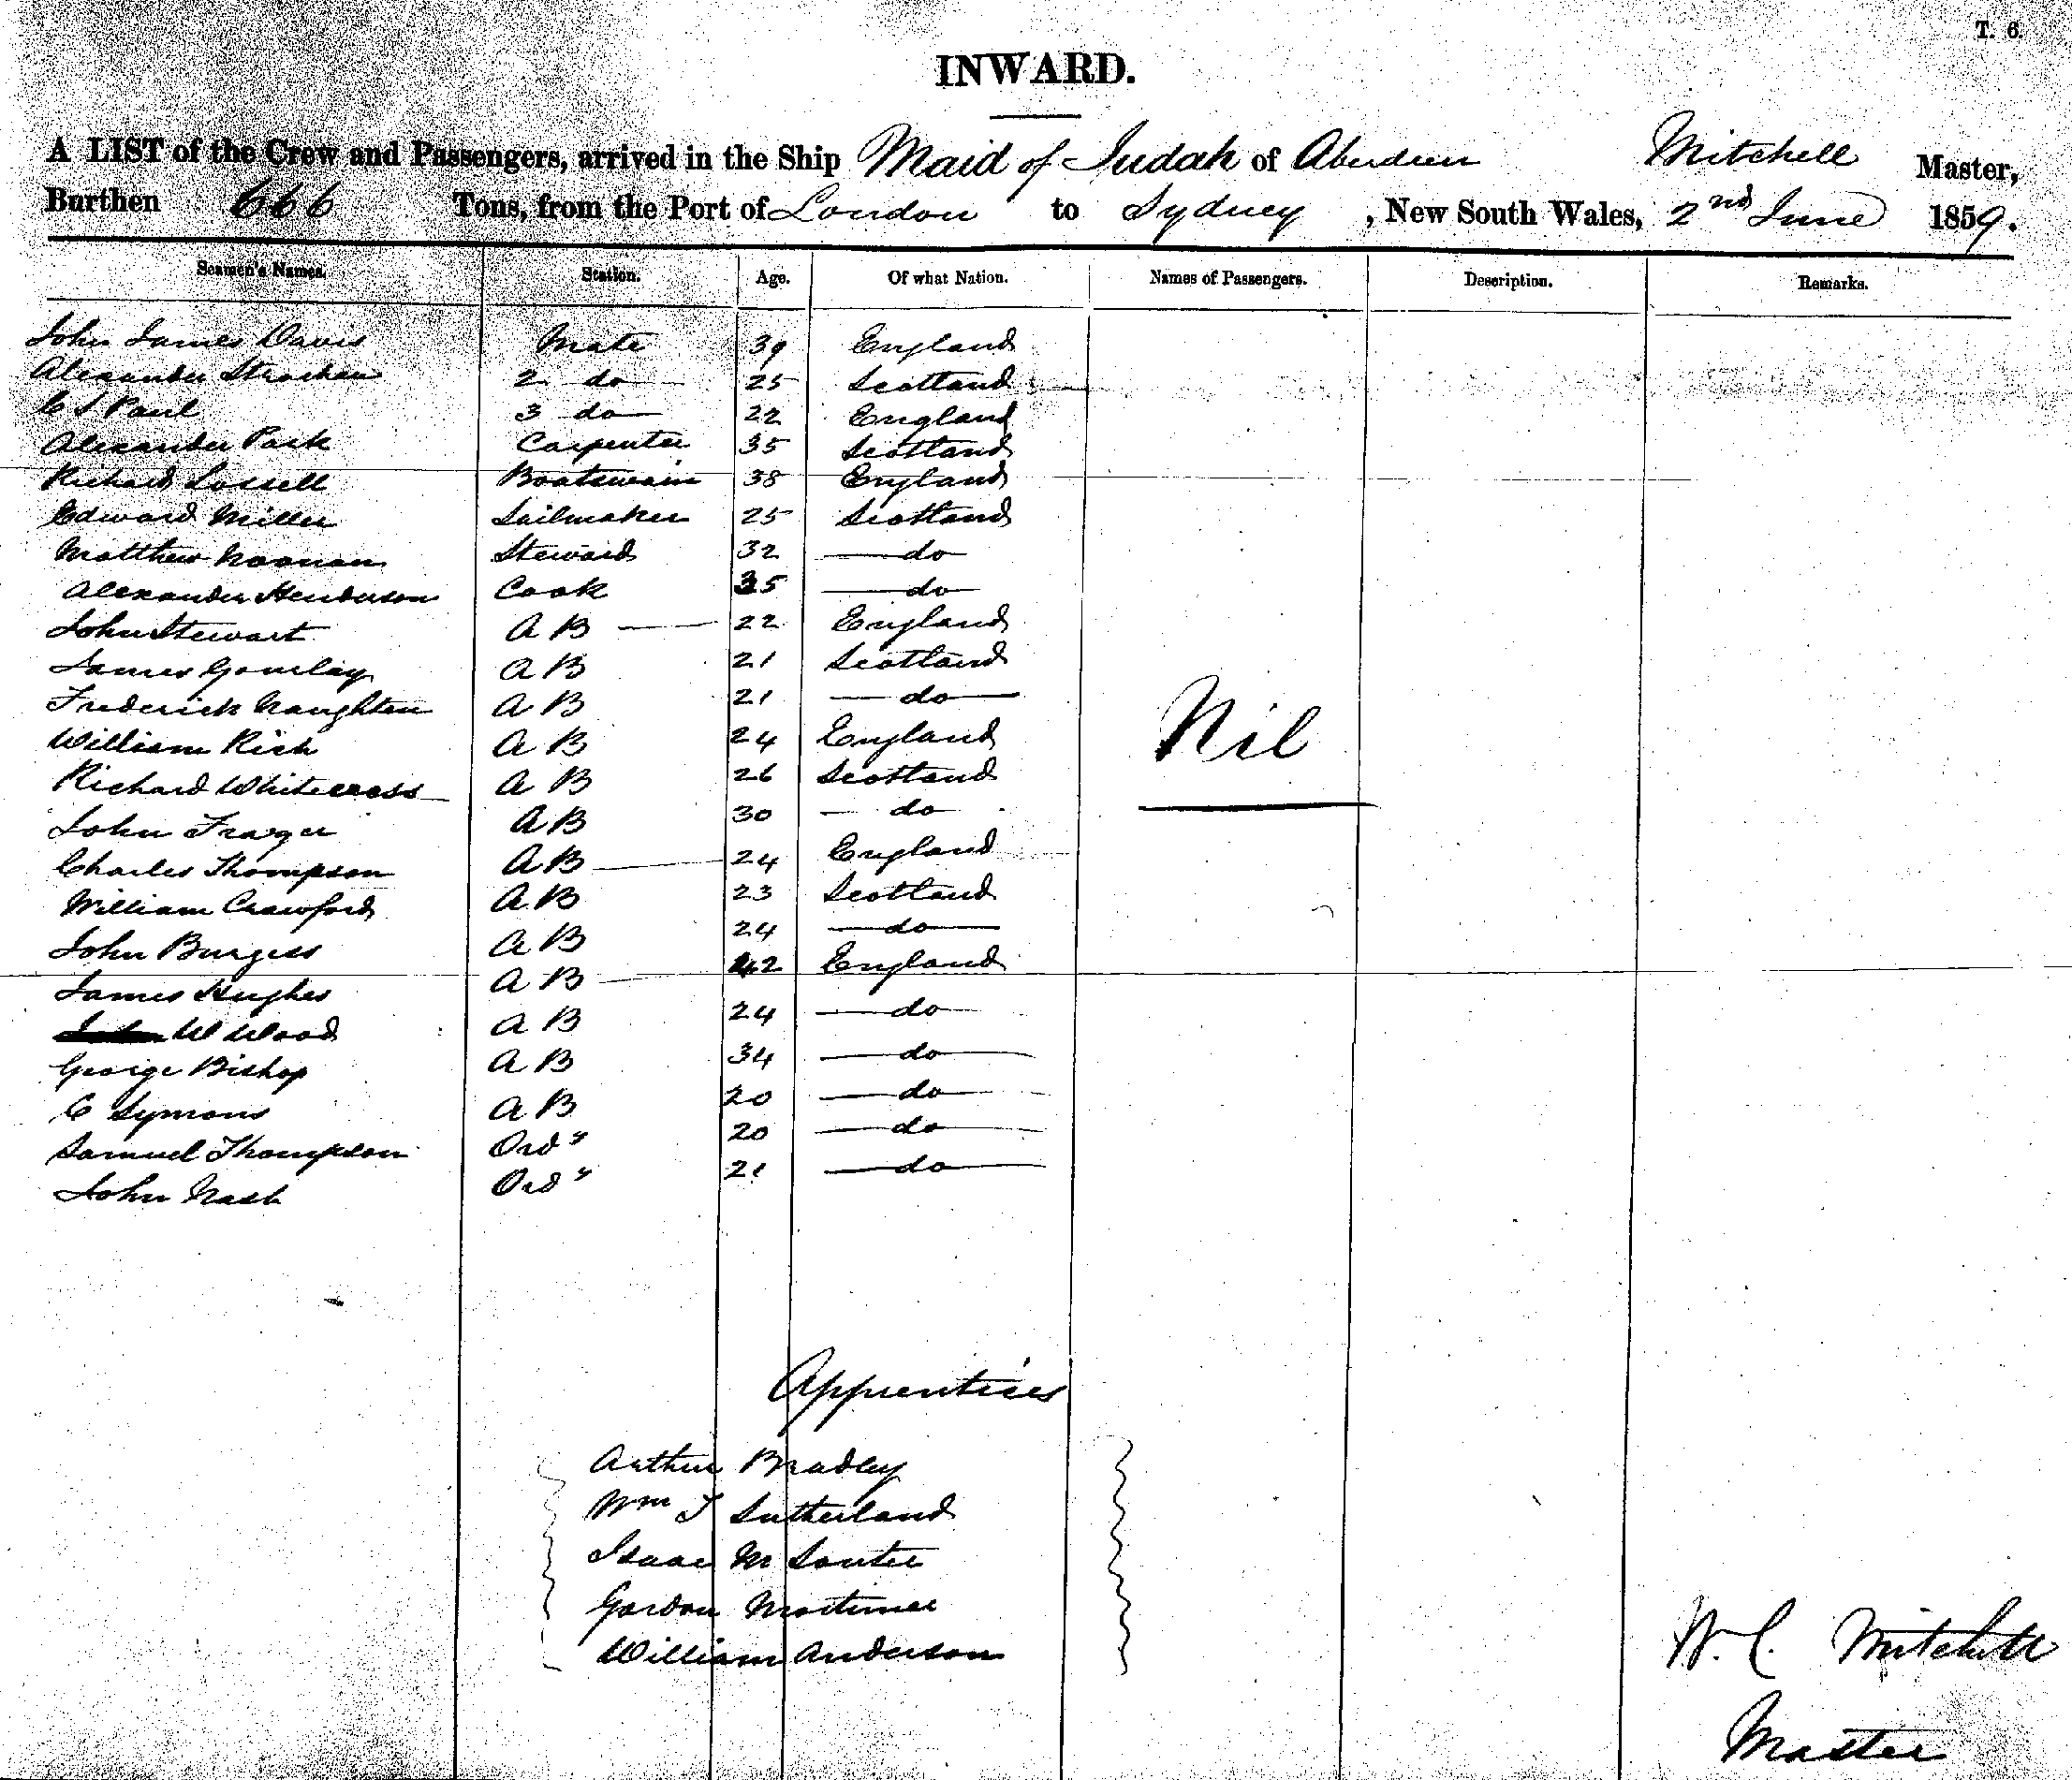 T. 6.
INWARD.
A LIST of the Crew and Passengers, arrived in the Ship Maid of Judah of Aberdeen Mitchell Master,
Burthen 666 Tons, from the Port of London to Sydney, New South Wales, 2nd June 1859.
Seamen's Names. Station. Age. Of what Nation. Names of Passengers. Description. Remarks.
John James Davis Mate 39 England
Alexander Strachan 2 do 25 Scotland
C S Paul 3 do 22 England
Alexander Park Carpenter 35 Scotland
Richard Boatswain 38 England
Edward Miller Sailmaker 25 Scotland
Matthew Noonan Steward 32 do
Alexander Henderson Cook 35 do
John Stewart A B 22 England
James Gourlay A B 21 Scotland
Frederick Naughten A B 21 do
William Rich A B 24 England
Nil
Richard Whitecross A B 26 Scotland
John Frazer A B 30 do
Charles Thompson A B 24 England
William Crawford A B 23 Scotland
John Burgess A B 24 do
James Hughes A B 42 England
W Wood A B 24 do
George Bishop A B 34 do
C Symons A B 20 do
Samuel Thompson Ord y 20 do
John Nash Ord y 21 do
Apprentices
Arthur Bradley
Wm J Sutherland
Isaac M Souter
Gordon Mortimer
William Anderson
W. C. Mitchell
Master